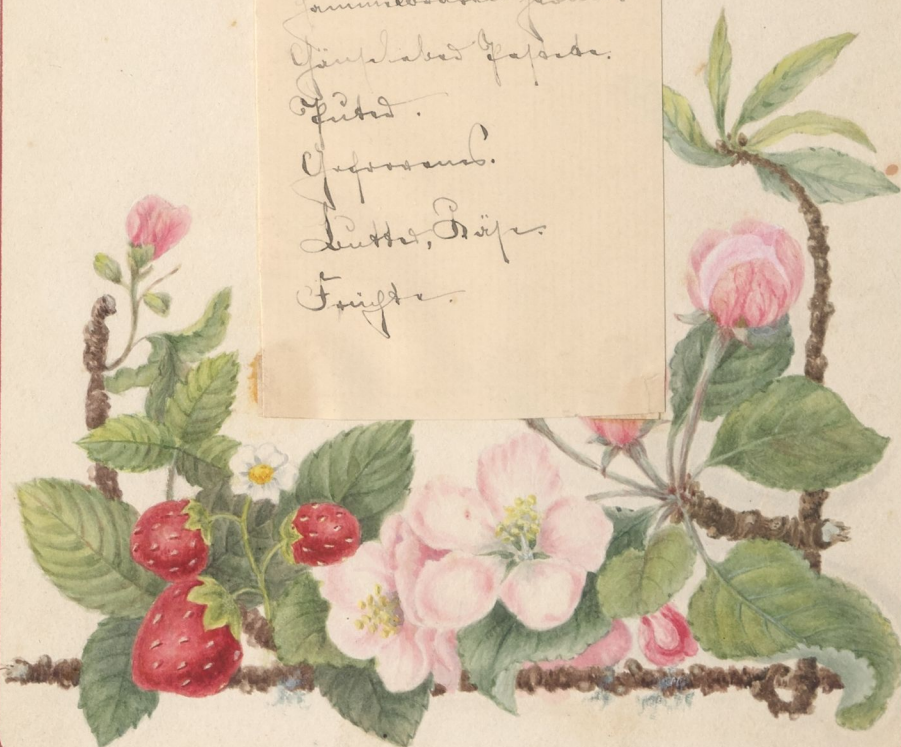 Gänseleber Pastete.
Puter.
Gefrorenes.
Butter, Käse.
Früchte.